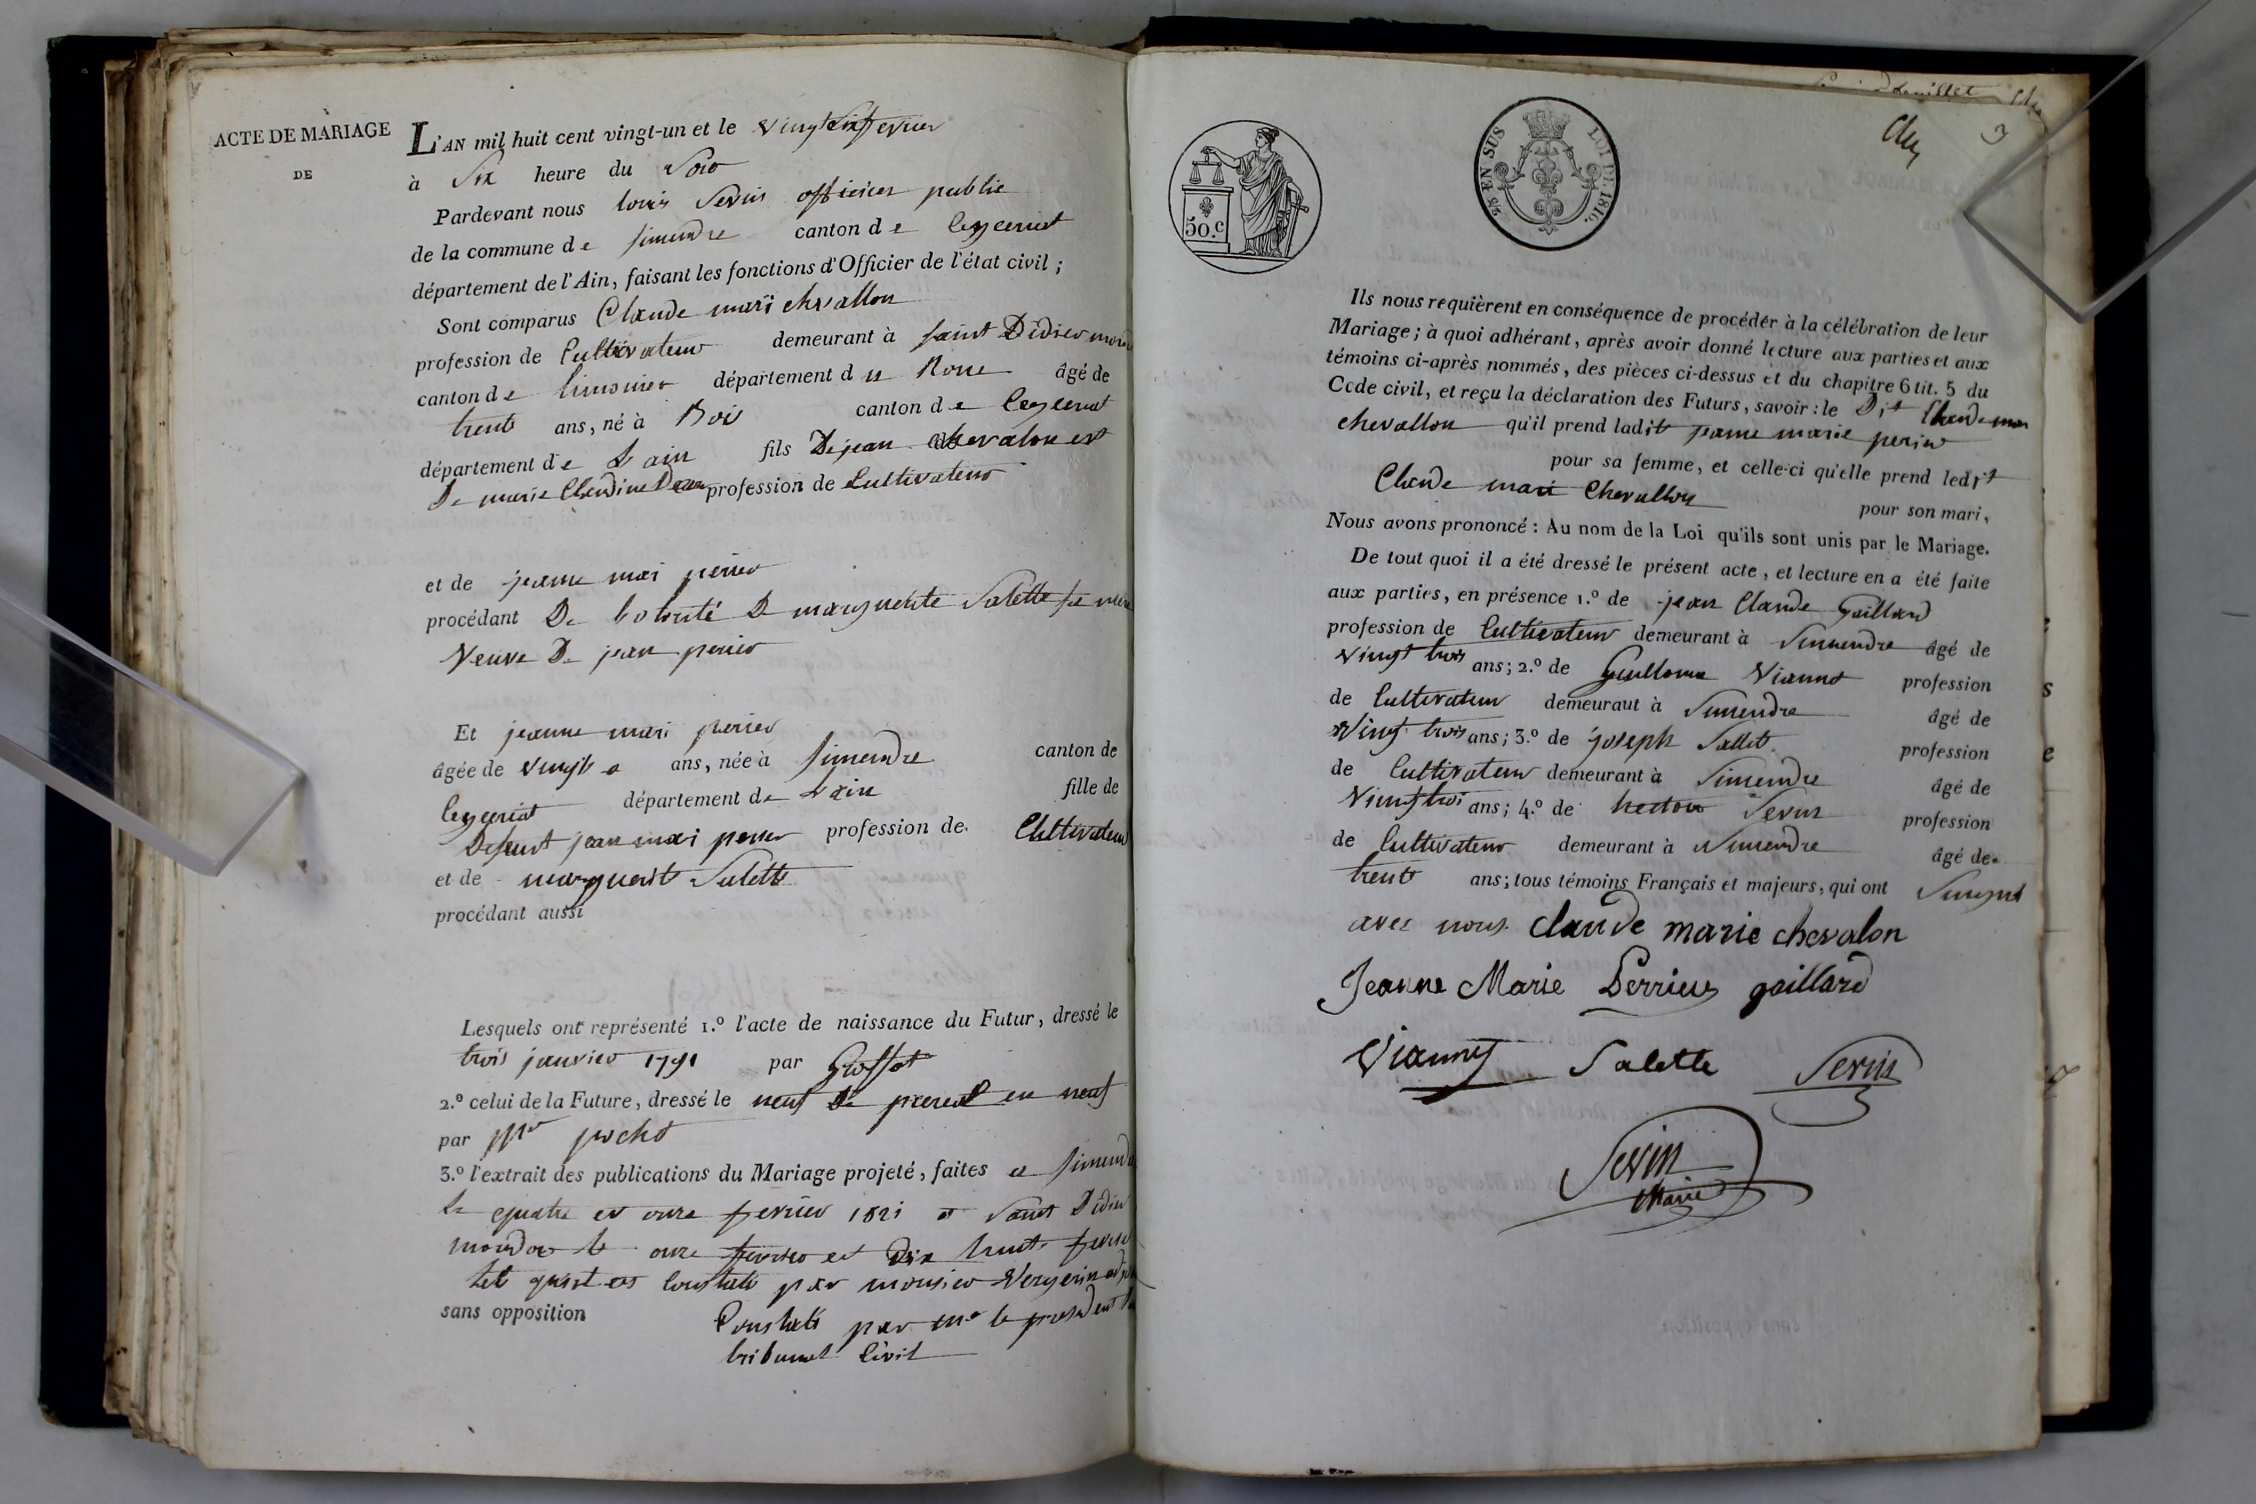 ACTE DE MARIAGE
DE
L'AN mil huit cent vingt-un et le vingt six fevrier
à Six heure du Soir
Pardevant nous louis Servin officier public
de la commune de simendre canton de Ceyzeriat
département de l'Ain, faisant les fonctions d'Officier de l'état civil ;
Sont comparus Claude mari chevallon
profession de Cultivateur demeurant à saint Didier
canton de limonier département du Rone âgé de
trente ans, né à canton de Ceyzeriat
département de L'ain fils De jean chevalon et
De marie Claudine profession de Cultivateur
et de jeanne mari perier
procédant De volonté De marguerite Salette sa mere
Veuve De jean perier
Et jeanne mari perier
âgée de vingt ans, née à simendre canton de
Ceyzeriat département de L'ain fille de
Defunt jean mari perier profession de Cultivateur
et de marguerite Salette
procédant aussi
Lesquels ont représenté 1.º l'acte de naissance du Futur, dressé le
trois janvier 1791 par
2.º celui de la Future, dressé le neuf De prereal en neuf
par Mr pochet
3.º l'extrait des publications du Mariage projeté, faites a simendre
le quatre et onze fevrier 1821 a Saint Didier
le onze fevrier et dix huit fevrier
tel quil est Constate par monsieur Vergerin
sans opposition Constate par mr le president
tribunal Civil
50.c
25 EN SUS LOI DE 1816.
3
Ils nous requièrent en conséquence de procéder à la célébration de leur
Mariage ; à quoi adhérant, après avoir donné lecture aux parties et aux
témoins ci-après nommés, des pièces ci-dessus et du chapitre 6 tit. 5 du
Code civil, et reçu la déclaration des Futurs, savoir : le Dit Claude mari
chevallon qu'il prend ladite jeanne marie perier
pour sa femme, et celle-ci qu'elle prend ledit
Claude mari Chevallon pour son mari,
Nous avons prononcé : Au nom de la Loi qu'ils sont unis par le Mariage.
De tout quoi il a été dressé le présent acte, et lecture en a été faite
aux parties, en présence 1.º de jean Claude Gaillard
profession de Cultivateur demeurant à Simendre âgé de
vingt trois ans ; 2.º de Guillaume Vianné profession
de Cultivateur demeuraut à Simendre âgé de
vingt trois ans ; 3.º de joseph Sallet profession
de Cultivateur demeurant à Simendre âgé de
vingt troi ans ; 4.º de hector Servin profession
de Cultivateur demeurant à Simendre âgé de
trente ans ; tous témoins Français et majeurs, qui ont
avec nous Claude marie chevalon
Jeanne Marie Perrier gaillard
Vianney Salette Servin
Servin
Maire